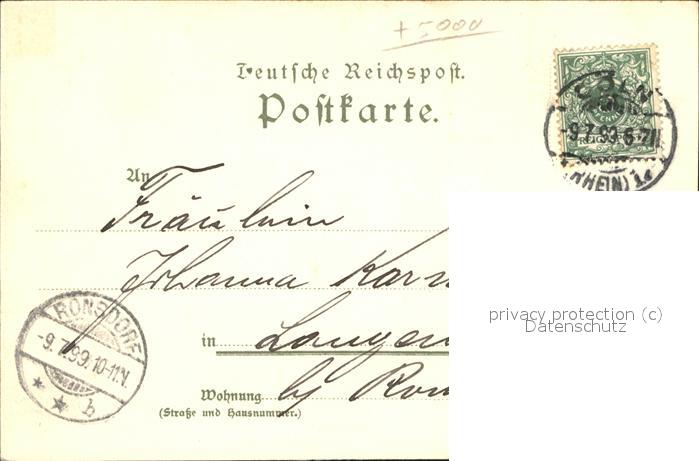 +5000
Deutsche Reichspost.
Postkarte.
CÖLN
-9.7.99.6-7N
(RHEIN) 1.
An
Fräulein
Johanna
in Langen
Wohnung by Ron
(Straße und Hausnummer.)
RONSDORF
-9.7.99.10-11.N.
* * b
privacy protection (c)
Datenschutz